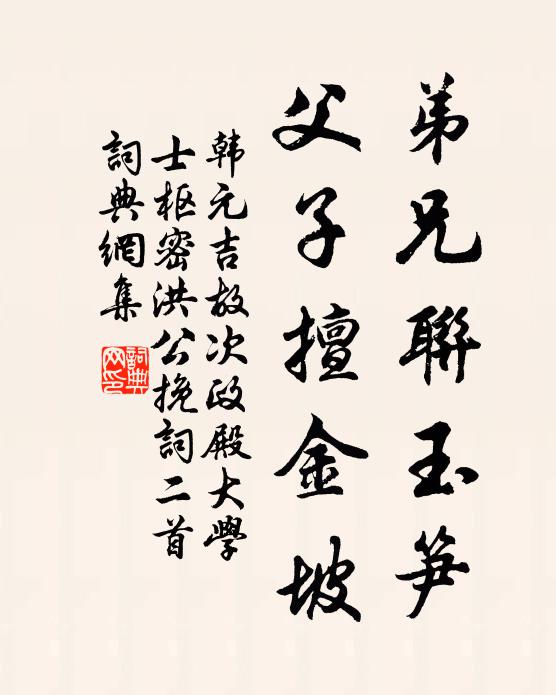 弟兄聯玉笋
父子擅金坡
韩元吉故次政殿大學
士枢密洪公挽詞二首
詞典網集
詞典
网印